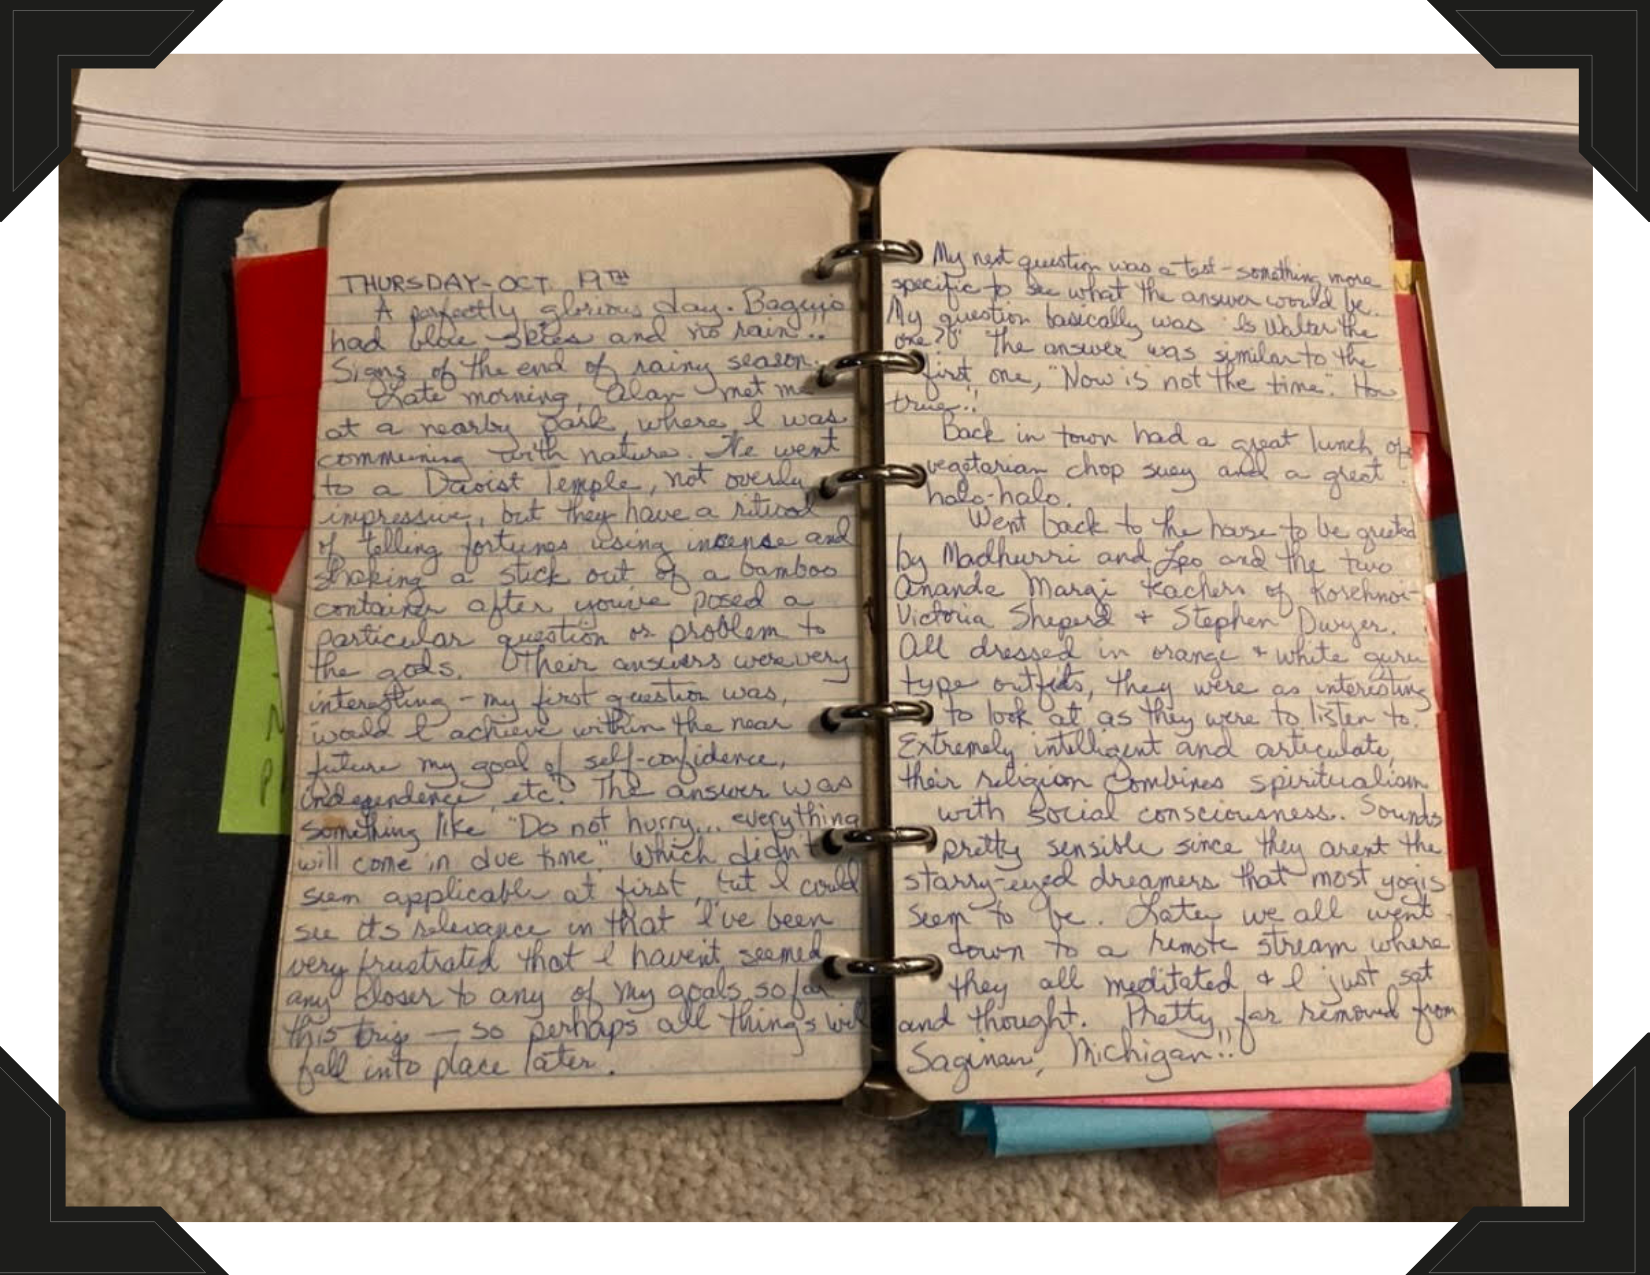 THURSDAY-OCT. 19TH
A perfectly glorious day. Baguio
had blue skies and no rain!!
Signs of the end of rainy season.
Late morning, Alan met me
at a nearby park where I was
communing with nature. We went
to a Daoist Temple, not overly
impressive, but they have a ritual
of telling fortunes using incense and
shaking a stick out of a bamboo
container after you've posed a
particular question or problem to
the gods. Their answers were very
interesting - my first question was,
would I achieve within the near
future my goal of self-confidence,
independence, etc. The answer was
something like "Do not hurry... everything
will come in due time" Which didn't
seem applicable at first, but I could
see its relevance in that I've been
very frustrated that I haven't seemed
any closer to any of my goals so far
this trip — so perhaps all things will
fall into place later.
My next question was a test - something more
specific to see what the answer would be.
My question basically was "Is Walter the
one?" The answer was similar to the
first one, "Now is not the time". How
true!!
Back in town had a great lunch of
vegetarian chop suey and a great
halo-halo.
Went back to the house to be greeted
by Madhurri and Leo and the two
Ananda Margi teachers of Korchnoi-
Victoria Sheperd + Stephen Dwyer.
All dressed in orange + white guru
type outfits, they were as interesting
to look at as they were to listen to.
Extremely intelligent and articulate,
their religion combines spiritualism
with social consciousness. Sounds
pretty sensible since they arent the
starry-eyed dreamers that most yogis
seem to be. Later we all went
down to a remote stream where
they all meditated & I just sat
and thought. Pretty far removed from
Saginaw, Michigan!!